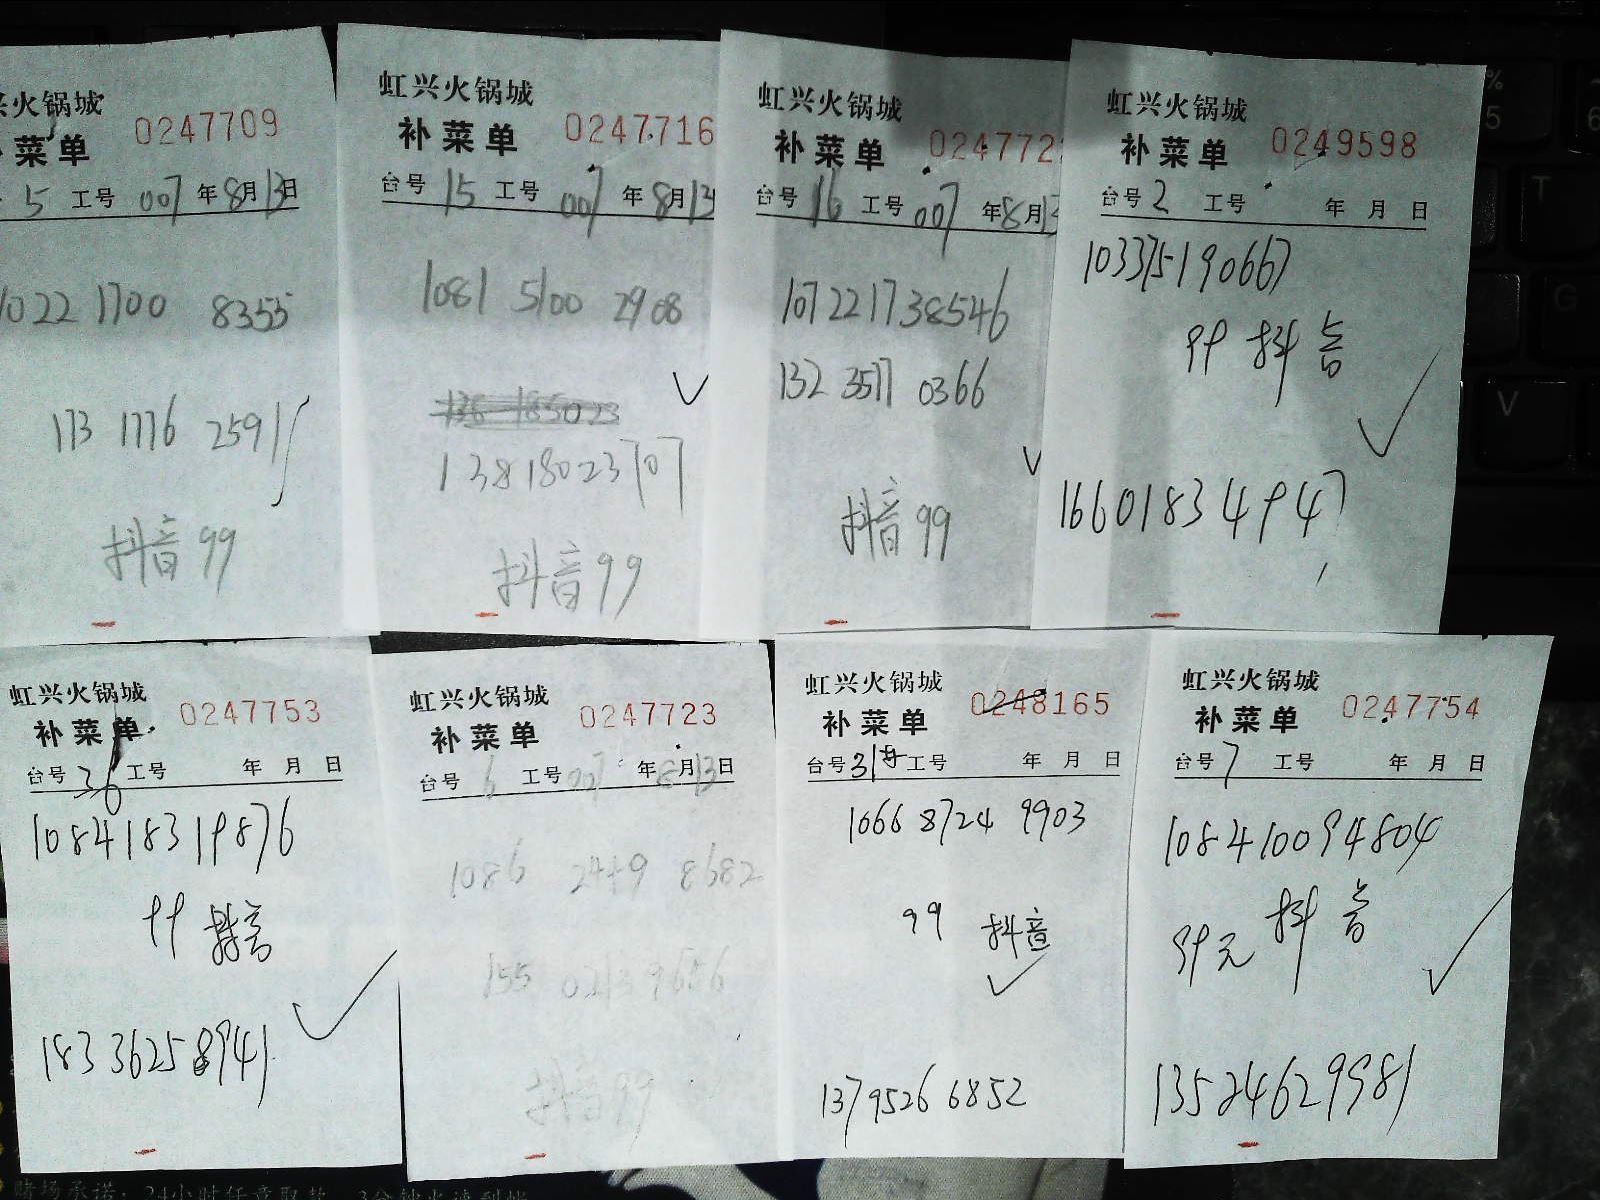 兴火锅城
菜单 0247709
5 工号 007 年 8月13日
1022 1700 8355
173 1776 2591
抖音 99
虹兴火锅城
补菜单 0247716
台号 15 工号 007 年 8月13
1081 5100 2908
13818023707
抖音 99
虹兴火锅城
补菜单 024772
台号 16 工号 007 年8月13
107221738546
132 3577 0366
抖音 99
虹兴火锅城
补菜单 0249598
台号 2 工号 年 月 日
103375190667
99 抖音
16601834947
虹兴火锅城
补菜单 0247753
台号 36 工号 年 月 日
108418319876
99 抖音
18336258941
虹兴火锅城
补菜单 0247723
台号 6 工号 007 年 8月13日
1086 2449 8682
155 0213 9656
抖音 99
虹兴火锅城
补菜单 0248165
台号 31 工号 年 月 日
1066 8724 9903
99 抖音
137 9526 6852
虹兴火锅城
补菜单 0247754
台号 7 工号 年 月 日
108410094804
99元 抖音
13524629981
赌场承诺：24小时任意取款